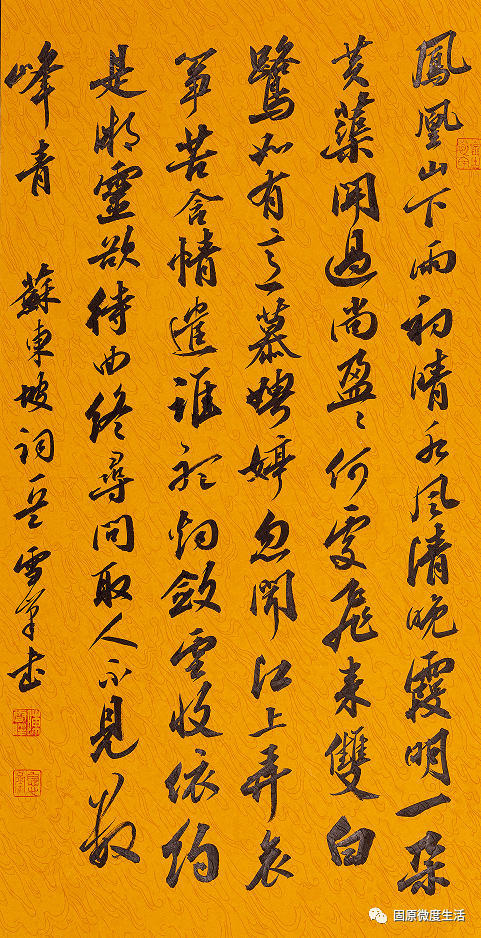 鳳凰山下雨初晴水風清晚霞明一朵
芙蕖開過尚盈〻何處飛來雙白
鷺如有意慕娉婷忽聞江上弄哀
筝苦含情遣誰聽烟斂雲收依約
是湘靈欲待曲終尋問取人不見數
峰青
蘇東坡詞 雪
固原微度生活